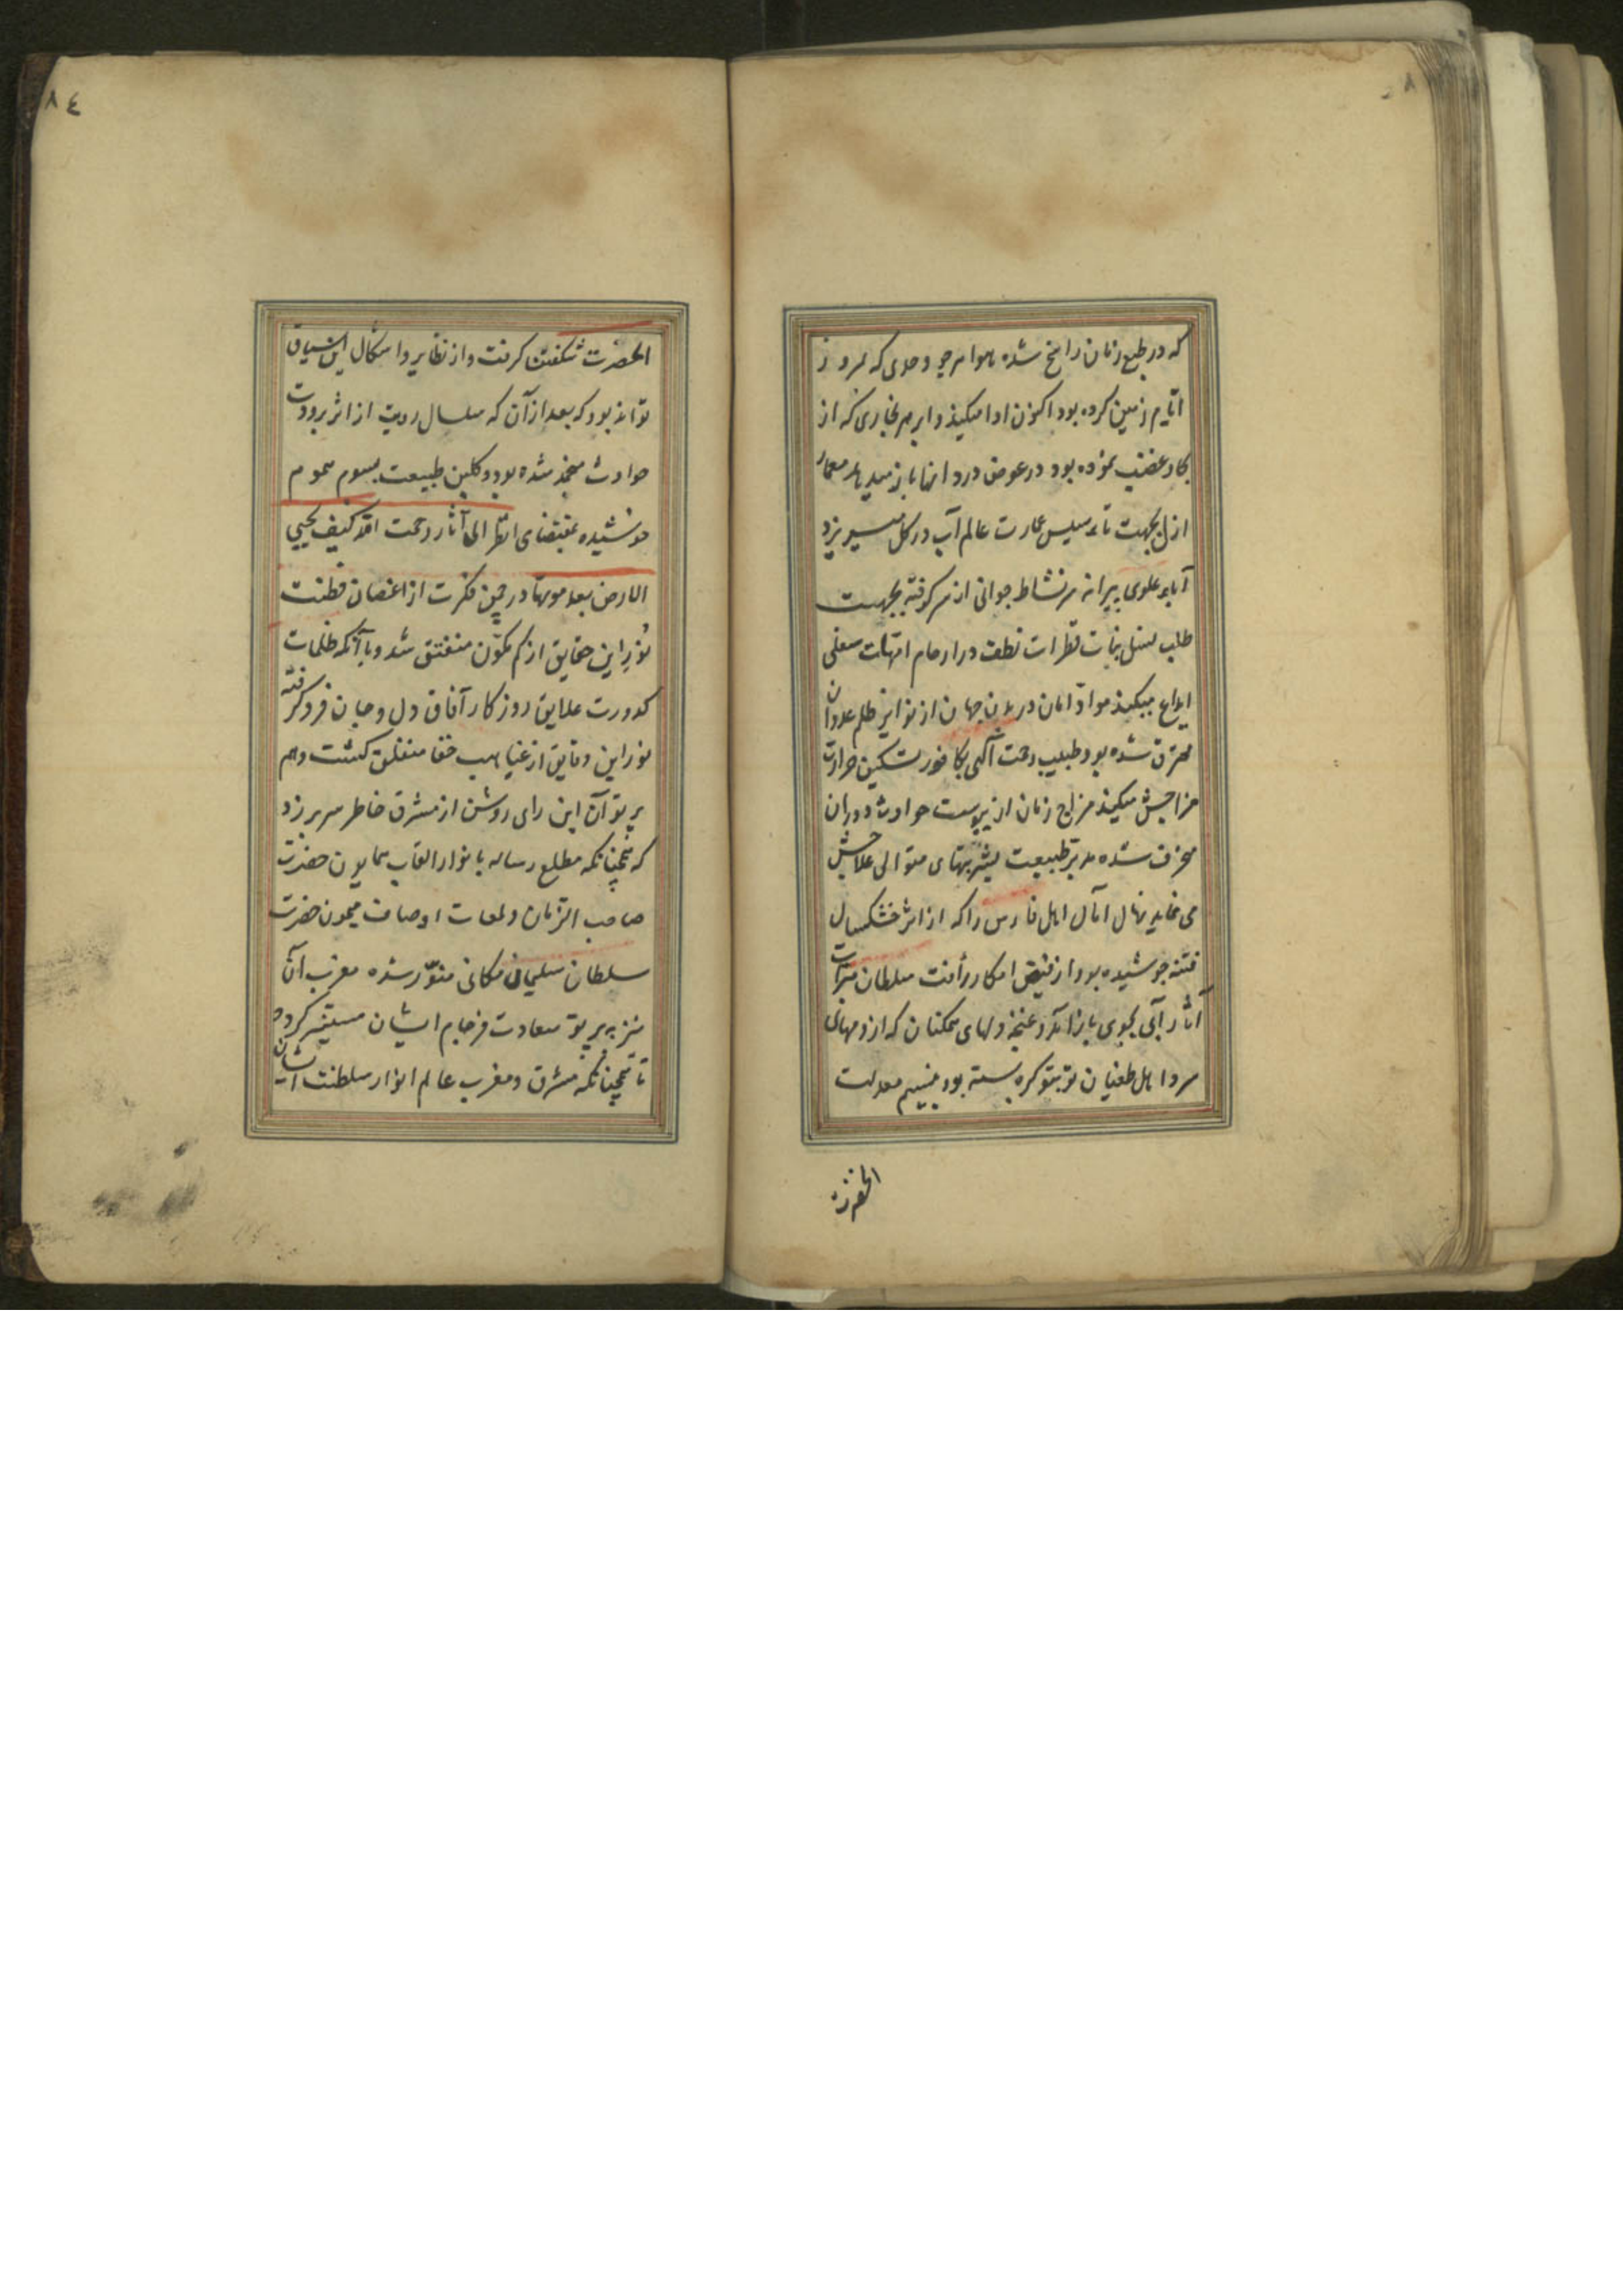 که در طبع زمان راسخ شده با هوا هر جو وحدی که در روز
ایام زمین کرده بود اکنون ادا میکند و ابر هر بخاری که از
بحار غصب نموده بود در عوض درد آنها باز میدهد معمار
ازل بجهت تأسیس عمارت عالم آب در کل میریزد
آباء علوی پیرانه سر نشاط جوانی از سر گرفته بجهت
طلب نسل نبات قطرات نطف در ارحام امهات سفلی
ایداع میکند مواد امان در بدن جهان از نوایر ظلم عدوان
محترق شده بود طبیب رحمت آلهی بکافور تسکین حرارت
مزاجش میکند مزاج زمان از یبوست حوادث دوران
منحرف شده مدبر طبیعت بشربتهای متوالی علاجش
می نماید نهال آمال اهل فارس را که از اثر خشکسال
فتنه جوشیده بود از فیض امطار رأفت سلطان
آثار آبی بجوی باز آمد و غنچه دلهای ممکنان که از دمهای
سرد اهل طغیان تو بتو کره بسته بود بنسیم معدلت
الحضرت
۸٤
الحضرت شکفتن کرفت و از نظایر و اشکال این سیاق
تواند بود که بعد از آن که سلسال رویت از اثر برودت
حوادث منجمد شده بود و کلبن طبیعت بسموم هموم
خوشیده بمقتضای انظر الی آثار رحمت الله کیف یحیی
الارض بعد موتها در چمن فکرت از اغصان فطنت
نور این حقایق از کم مکون منفتق شد و با آنکه ظلمات
کدورت علایق روزکار آفاق دل و جان فرو کرفته
نور این دقایق از غیاهب خفا منفلق کشت وهم
بر پرتو آن این رای روشن از مشرق خاطر سر بر زد
که همچنانکه مطلع رساله بانوار القاب همایون حضرت
صاحب الزمان و لمعات اوصاف میمون حضرت
سلطان سلیمان مکانی منور شده مغرب آن
نیز به پرتو سعادت فرجام ایشان مستنیر کردد
تا همچنانکه مشرق و مغرب عالم انوار سلطنت ایشان